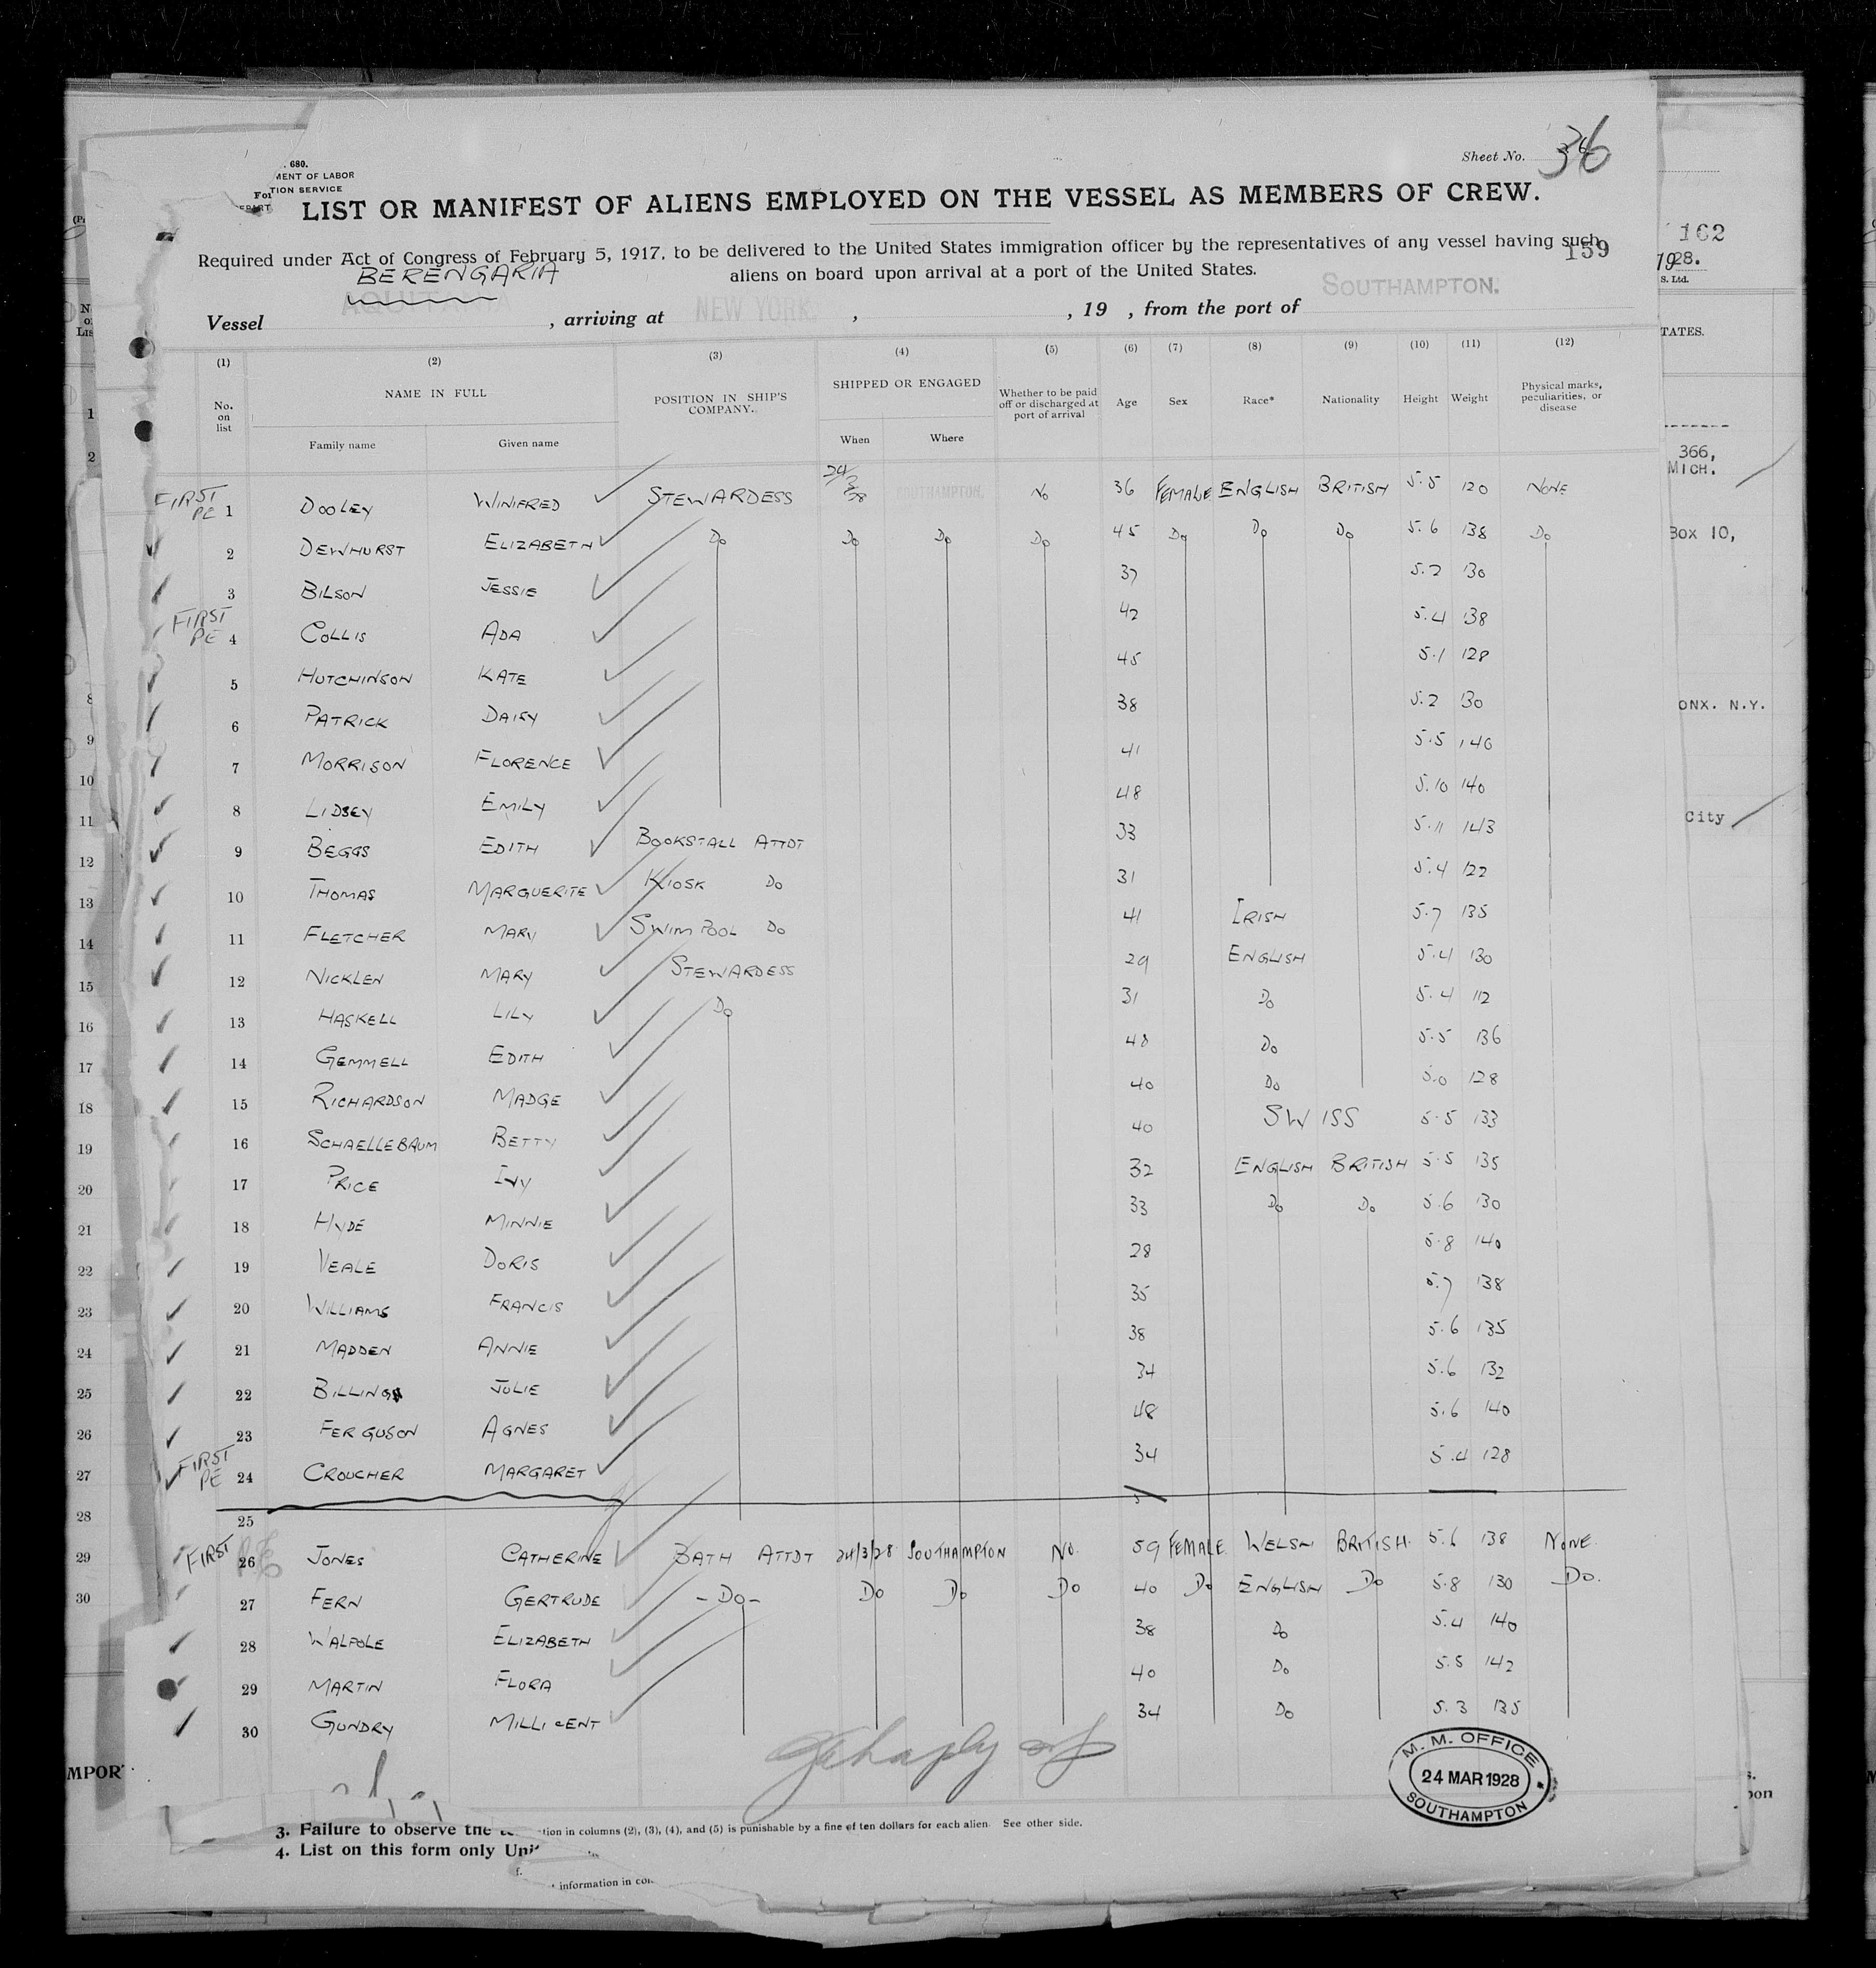 . 680.
MENT OF LABOR
TION SERVICE
Sheet No. 36
LIST OR MANIFEST OF ALIENS EMPLOYED ON THE VESSEL AS MEMBERS OF CREW.
Required under Act of Congress of February 5, 1917, to be delivered to the United States immigration officer by the representatives of any vessel having such
159
aliens on board upon arrival at a port of the United States.
BERENGARIA
Vessel AQUITANIA, arriving at NEW YORK, , 19 , from the port of SOUTHAMPTON.
(1) (2) (3) (4) (5) (6) (7) (8) (9) (10) (11) (12)
No. on list NAME IN FULL Family name Given name POSITION IN SHIP'S COMPANY. SHIPPED OR ENGAGED When Where Whether to be paid off or discharged at port of arrival Age Sex Race* Nationality Height Weight Physical marks, peculiarities, or disease
FIRST PE 1 DOOLEY WINIFRED STEWARDESS 24/3/28 SOUTHAMPTON. NO 36 FEMALE ENGLISH BRITISH 5.5 120 NONE
2 DEWHURST ELIZABETH DO DO DO DO 45 DO DO DO 5.6 138 DO
3 BILSON JESSIE 37 5.2 130
FIRST PE 4 COLLIS ADA 42 5.4 138
5 HUTCHINSON KATE 45 5.1 128
6 PATRICK DAISY 38 5.2 130
7 MORRISON FLORENCE 41 5.5 140
8 LIDSEY EMILY 48 5.10 140
9 BEGGS EDITH BOOKSTALL ATTDT 33 5.11 143
10 THOMAS MARGUERITE KIOSK DO 31 5.4 122
11 FLETCHER MARY SWIM POOL DO 41 IRISH 5.7 135
12 NICKLEN MARY STEWARDESS 29 ENGLISH 5.4 130
13 HASKELL LILY DO 31 DO 5.4 112
14 GEMMELL EDITH 48 DO 5.5 136
15 RICHARDSON MADGE 40 DO 5.0 128
16 SCHAELLEBAUM BETTY 40 SWISS 5.5 133
17 PRICE IVY 32 ENGLISH BRITISH 5.5 135
18 HYDE MINNIE 33 DO DO 5.6 130
19 VEALE DORIS 28 5.8 140
20 WILLIAMS FRANCIS 35 5.7 138
21 MADDEN ANNIE 38 5.6 135
22 BILLINGS JULIE 34 5.6 132
23 FERGUSON AGNES 48 5.6 140
FIRST PE 24 CROUCHER MARGARET 34 5.4 128
25
FIRST 26 JONES CATHERINE BATH ATTDT 24/3/28 SOUTHAMPTON NO. 59 FEMALE WELSH BRITISH 5.6 138 NONE.
27 FERN GERTRUDE -DO- DO DO DO 40 DO ENGLISH DO 5.8 130 DO.
28 WALPOLE ELIZABETH 38 DO 5.4 140
29 MARTIN FLORA 40 DO 5.5 142
30 GUNDRY MILLICENT 34 DO 5.3 135
M. M. OFFICE
24 MAR 1928
SOUTHAMPTON
3. Failure to observe the
tion in columns (2), (3), (4), and (5) is punishable by a fine of ten dollars for each alien. See other side.
4. List on this form only
information in
162
1928.
S. Ltd.
TATES.
366,
MICH.
Box 10,
ONX. N.Y.
City